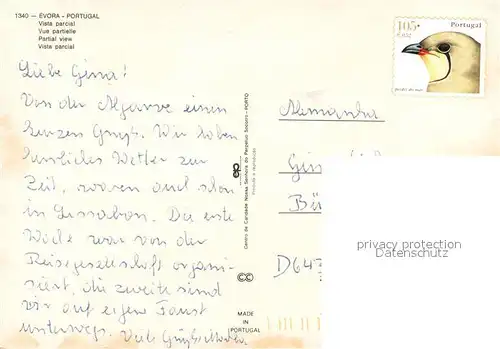 1340 — ÉVORA - PORTUGAL
Vista parcial
Vue partielle
Partial view
Vista parcial
Liebe Gina!
Von der Algarve einen
kurzen Gruß. Wir haben
herrliches Wetter zur
Zeit, waren auch schon
in Lissabon. Die erste
Woche war von der
Reisegesellschaft organi-
siert, die zweite sind
wir auf eigene Faust
unterwegs. Viele Grüße
ep
Centro de Caridade Nossa Senhora do Perpétuo Socorro - PORTO
MADE
IN
PORTUGAL
105$
Portugal
D 647
privacy protection
Datenschutz